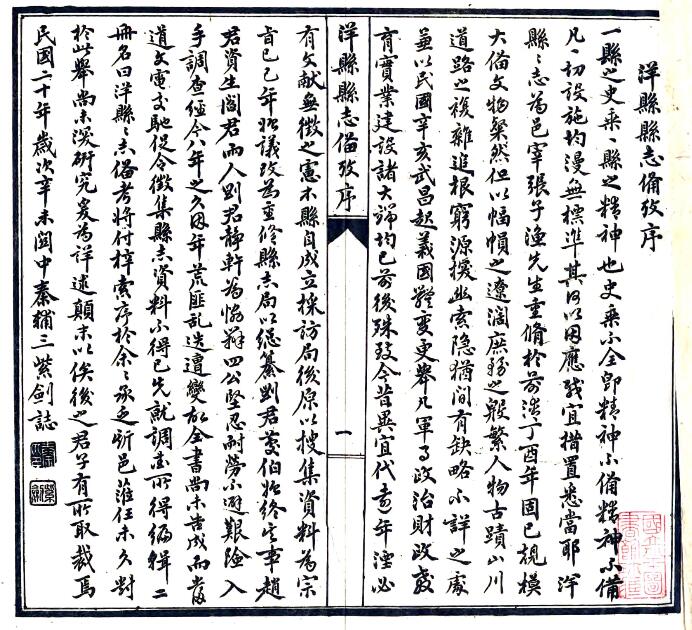 洋縣縣志備攷序
一縣之史乘一縣之精神也史乘不全即精神不備精神不備
凡一切設施均漫無標準其何以因應咸宜措置悉當耶洋
縣縣志為邑宰張子漁先生重脩於前清丁酉年固已規模
大備文物粲然但以幅幀之遼濶庶務之殷繁人物古蹟山川
道路之複雜追根窮源援幽索隐猶间有缺略不詳之處
益以民國辛亥武昌起義國體變更舉凡軍事政治財政教
育實業建設諸大端均已前後殊致今昔異宜代遠年湮必
有文献無徵之憲本縣自成立採訪局後原以搜集資料為宗
旨己巳年始議改為重修縣志局以總纂劉君菱伯始終其事趙
君資生閻君雨人劉君靜軒為協辦四公堅忍耐勞不避艱險入
手調查經今八年之久因年荒匪乱迭遭變故全書尚未告成而當
道文電交馳促令徵集縣志資料不得已先就調查所得編輯二
冊名曰洋縣縣志備考將付梓索序於余余承乏斯邑蒞任未久對
於此舉尚未深研究爰為詳述顛末以俟後之君子有所取裁焉
民國二十年歲次辛未関中秦輔三紫劍誌
洋縣縣志備攷序
一